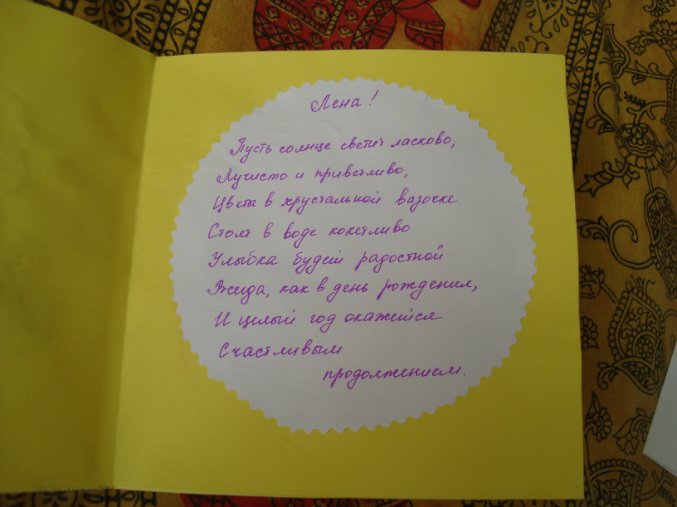 Лена!
Пусть солнце светит ласково,
Лучисто и приветливо,
Цветы в хрустальной вазочке
Стоят в воде кокетливо
Улыбка будет радостной
Всегда, как в день рождения,
И целый год окажется
Счастливым
продолжением.